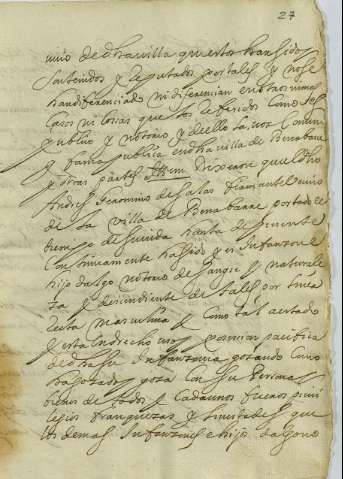 27
vino de dha villa que estos han sido
tenidos y Reputados por tales y no se
han diferenciado ni diferencian en otros nin
casos ni cosas que los referidos como es
publico y notorio y de ello la voz comun
y fama publica en dha villa de Benabarre
y otras partes Ittem Dixeron que el dho
Andres Geronimo de Salas Travante vecino
de la villa de Benabarre por todo el
tiempo de su vida hasta de presente
continuamente ha sido y es Infanzon e
hijo dalgo notorio de sangre y naturaleza
y descendiente de tales por linea
recta masculina y como tal ha estado
y esta en drecho uso y posesion pacifica
de dha su Infanzonia gozando como
ha gozado y goza con su Persona
bienes de todos y cada unos fueros privi
legios franquezas y livertades que
los demas Infanzones e hijos dalgo no